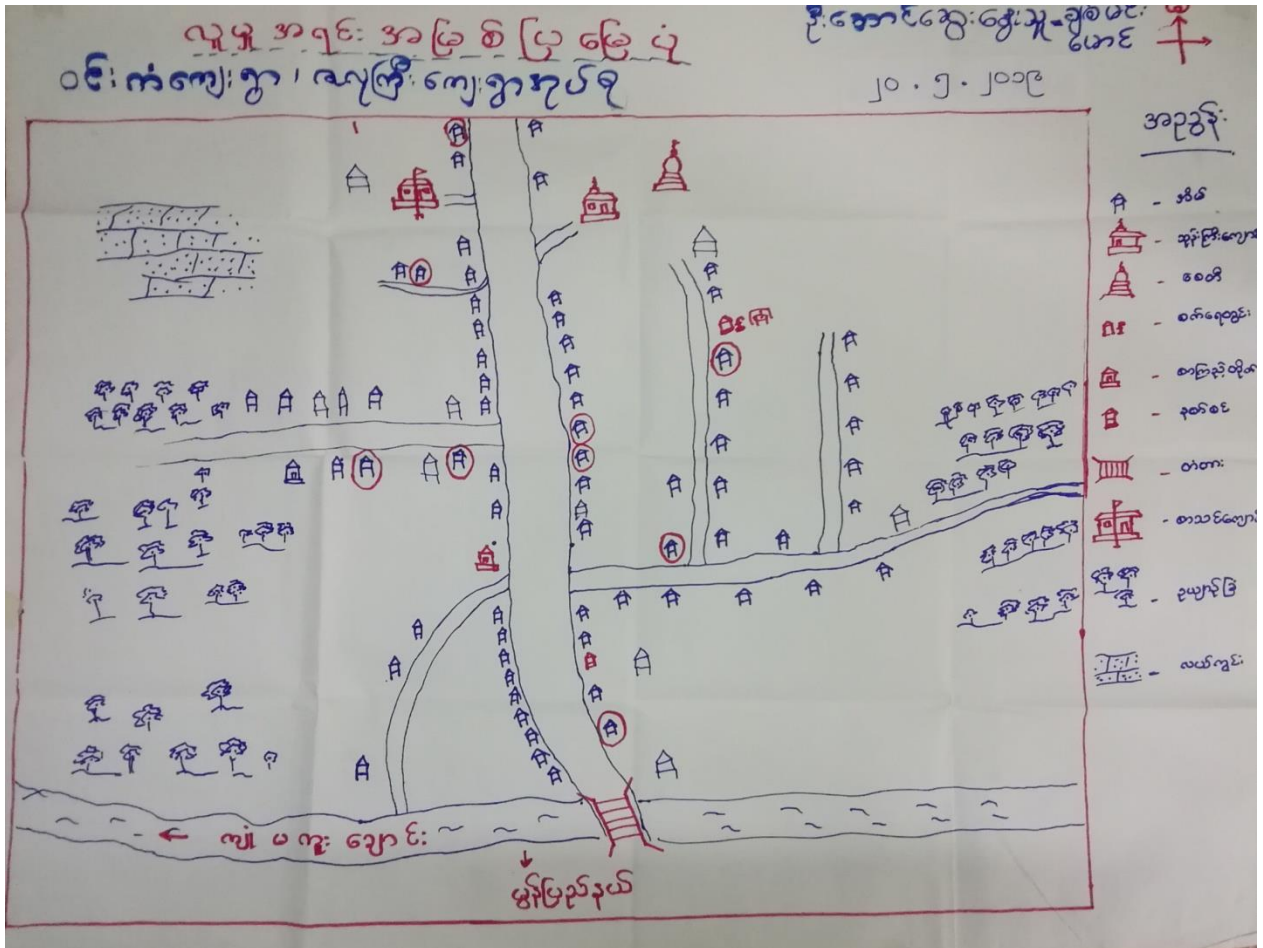 လူမှုအရင်းအမြစ်ပြမြေပုံ
ဝင်းကံကျေးရွာ၊ ဇလုကြီးကျေးရွာအုပ်စု
၂၀.၅.၂၀၁၉
အညွှန်း
- အိမ်
- ဘုန်းကြီးကျောင်
- စေတီ
- စက်ရေတွင်း
- စာကြည့်တိုက
- နတ်စင်
- တံတား
- စာသင်ကျောင်
- ဥယျာဉ်ခြံ
- လယ်ကွင်း
← ကျုံမကူးချောင်း
↓
မွန်ပြည်နယ်